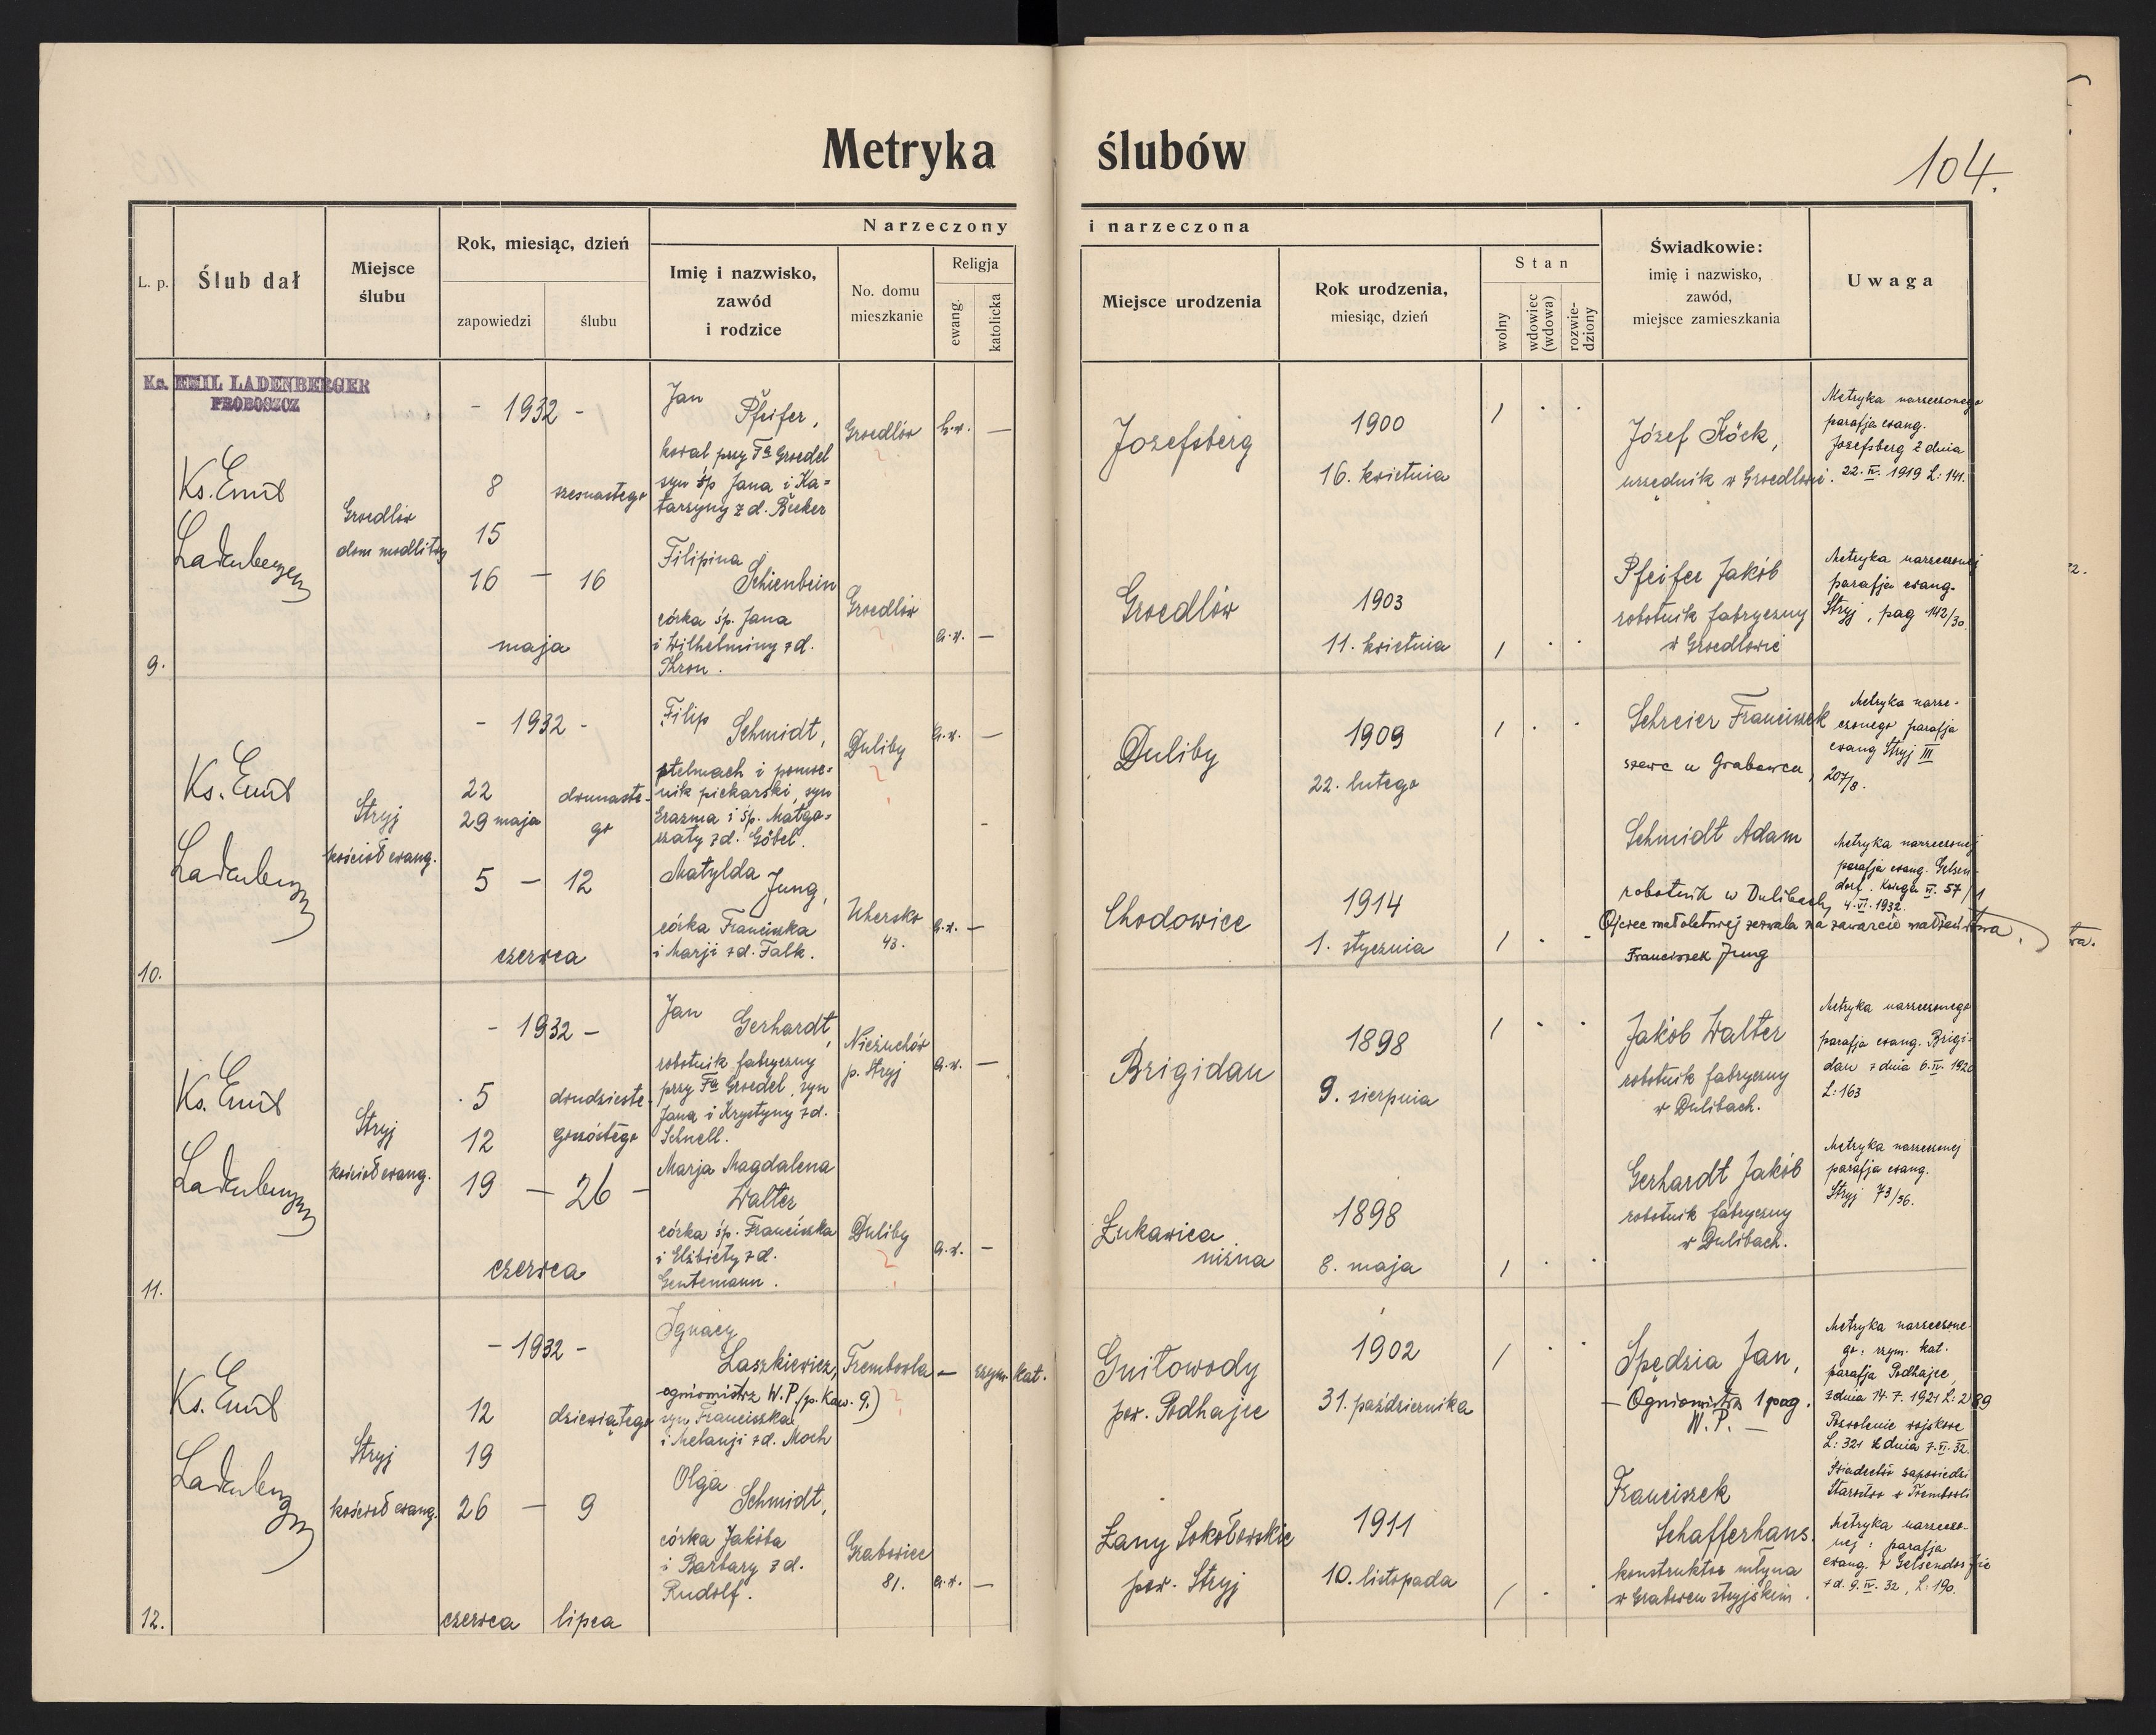 Metryka ślubów
104.
Narzeczony i narzeczona
L. p.
Ślub dał
Miejsce
ślubu
Rok, miesiąc, dzień
zapowiedzi
ślubu
Imię i nazwisko,
zawód
i rodzice
No. domu
mieszkanie
Religja
ewang.
katolicka
Miejsce urodzenia
Rok urodzenia,
miesiąc, dzień
Stan
wolny
wdowiec
(wdowa)
rozwie-
dziony
Świadkowie:
imię i nazwisko,
zawód,
miejsce zamieszkania
Uwaga
Ks. EMIL LADENBERGER
PROBOSZCZ
9.
Ks. Emil
Ladenberger
Groedlów
dom modlitwy
- 1932 -
8
15
16 — 16
szesnastego
maja
Jan
Pfeifer,
kowal przy Fa Groedel
syn śp Jana i Ka=
tarzyny z d. Becker
Groedlów
—
Filipina
Schienbein
córka śp. Jana
i Wilhelminy z d.
Kron.
Groedlów
a.w. —
Josefsberg
1900
16. kwietnia
Groedlów
1903
11. kwietnia
Józef Köck,
urzędnik w Groedlowie.
Pfeifer Jakób
robotnik fabryczny
w Groedlowie
Metryka narzeczonego
parafja ewang.
Josefsberg z dnia
22. IV. 1919 L: 141.
Metryka narzeczonej
parafja ewang.
Stryj, pag 142/30.
10.
Ks. Emil
Ladenberger
Stryj
kościół ewang.
- 1932 -
22
29 maja
5 — 12
dwunaste-
go
czerwca
Filip
Schmidt,
stelmach i pomoc=
nik piekarski, syn
Erazma i śp. Małgo=
rzaty z d. Göbel.
Duliby
a.w. —
Matylda
Jung,
córka Franciszka
i Marji z d. Falk.
Uhersko
43.
a.w. —
Duliby
1909
22. lutego
Chodowice
1914
1. stycznia
Schreier Franciszek
szewc w Grabowcu,
Schmidt Adam
robotnik w Dulibach,
Ojciec małoletniej zezwala na zawarcie małżeństwa.
Franciszek Jung
Metryka narze-
czonego parafja
ewang Stryj III
207/8.
Metryka narzeczonej
parafja ewang. Gelsen-
dorf. Księga VI. 57/1
4. VI. 1932.
11.
Ks. Emil
Ladenberger
Stryj
kościół ewang.
- 1932 -
5
12
19 — 26 —
dwudzieste-
goszóstego
czerwca
Jan
Gerhardt,
robotnik fabryczny
przy Fa Groedel, syn
Jana i Krystyny z d.
Schnell.
Nieżuchów
p. Stryj
a.w. —
Marja Magdalena
Walter
córka śp. Franciszka
i Elżbiety z d.
Gentemann.
Duliby
a.w. —
Brigidau
1898
9. sierpnia
Łukawica
niżna
1898
8. maja
Jakób Walter
robotnik fabryczny
w Dulibach.
Gerhardt Jakób
robotnik fabryczny
w Dulibach.
Metryka narzeczonego
parafja ewang. Brigi-
dau z dnia 6. IV. 1920
L: 163
Metryka narzeczonej
parafja ewang.
Stryj 73/56.
12.
Ks. Emil
Ladenberger
Stryj
kościół ewang.
- 1932 -
12
19
26 — 9
dziewiątego
czerwca lipca
Ignacy
Laszkiewicz,
ogniomistrz W.P. (p. Kaw. 9.)
syn Franciszka
i Melanji z d. Moch
Trembowla
— rzym. kat.
Olga
Schmidt,
córka Jakóba
i Barbary z d.
Rudolf.
Grabowiec
81.
a.w. —
Gniłowody
pow. Podhajce
1902
31. października
Łany Sokołowskie
pow. Stryj
1911
10. listopada
Spędzia Jan,
— Ogniomistrz 1 pag.
W. P. —
Franciszek
Schafferhans.
konstruktor młyna
w Grabowcu stryjskim.
Metryka narzeczone-
go: rzym. kat.
parafja Podhajce,
z dnia 14. 7. 1921 L: 2189
Pozwolenie wojskowe
L: 321 z dnia 7. VI. 32.
Świadectw zapowiedzi
Starostwo w Trembowli
Metryka narzeczo-
nej: parafja
ewang. w Gelsendorfie
z d. 9. IV. 32, L: 190.